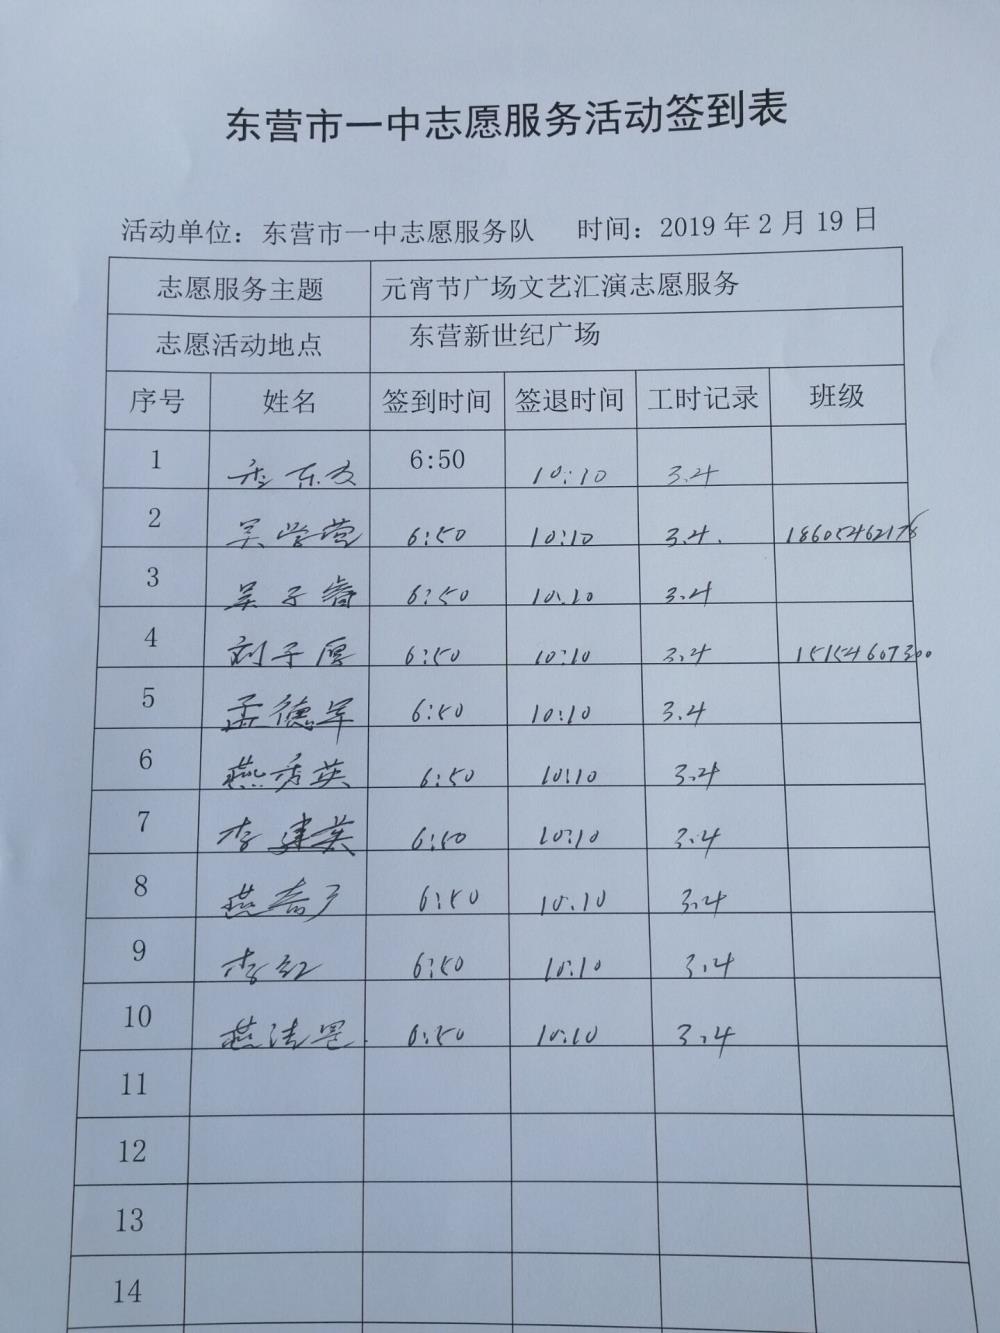 东营市一中志愿服务活动签到表
活动单位：东营市一中志愿服务队 时间：2019 年 2 月 19 日
志愿服务主题 元宵节广场文艺汇演志愿服务
志愿活动地点 东营新世纪广场
序号 姓名 签到时间 签退时间 工时记录 班级
1 6:50 10:10 3.4
2 吴学营 6:50 10:10 3.4. 18605462176
3 吴子睿 6:50 10:10 3.4
4 刘子厚 6:50 10:10 3.4 15154607300
5 孟德军 6:50 10:10 3.4
6 燕秀英 6:50 10:10 3.4
7 李建英 6:50 10:10 3.4
8 6:50 10:10 3.4
9 李红 6:50 10:10 3.4
10 6:50 10:10 3.4
11
12
13
14